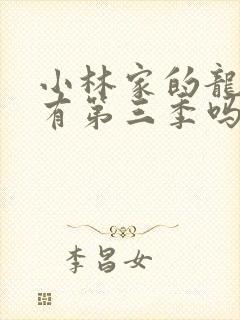 小林家的龍
有第三季吗
李昌女